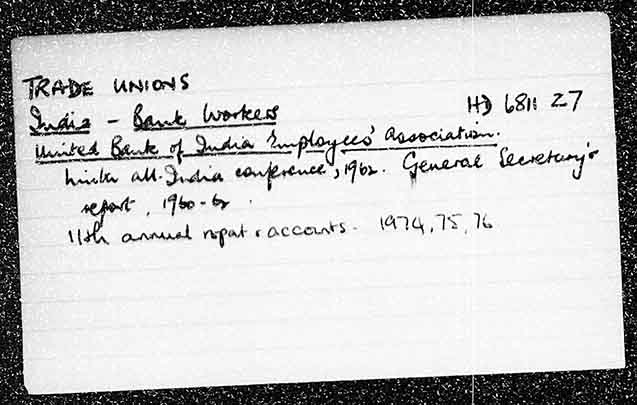 TRADE UNIONS
India - Bank Workers HD 6811 Z7
United Bank of India Employees' Association.
all-India conference, 1962. General Secretary's
report, 1960-62.
11th annual report & accounts. 1974, 75, 76